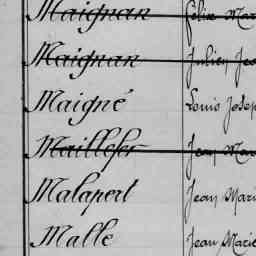 Maignan Félix Mar
Maignan Julien Jea
Maigné Louis Josep
Maillefer Jean Mar
Malapert Jean Mari
Malle Jean Marie